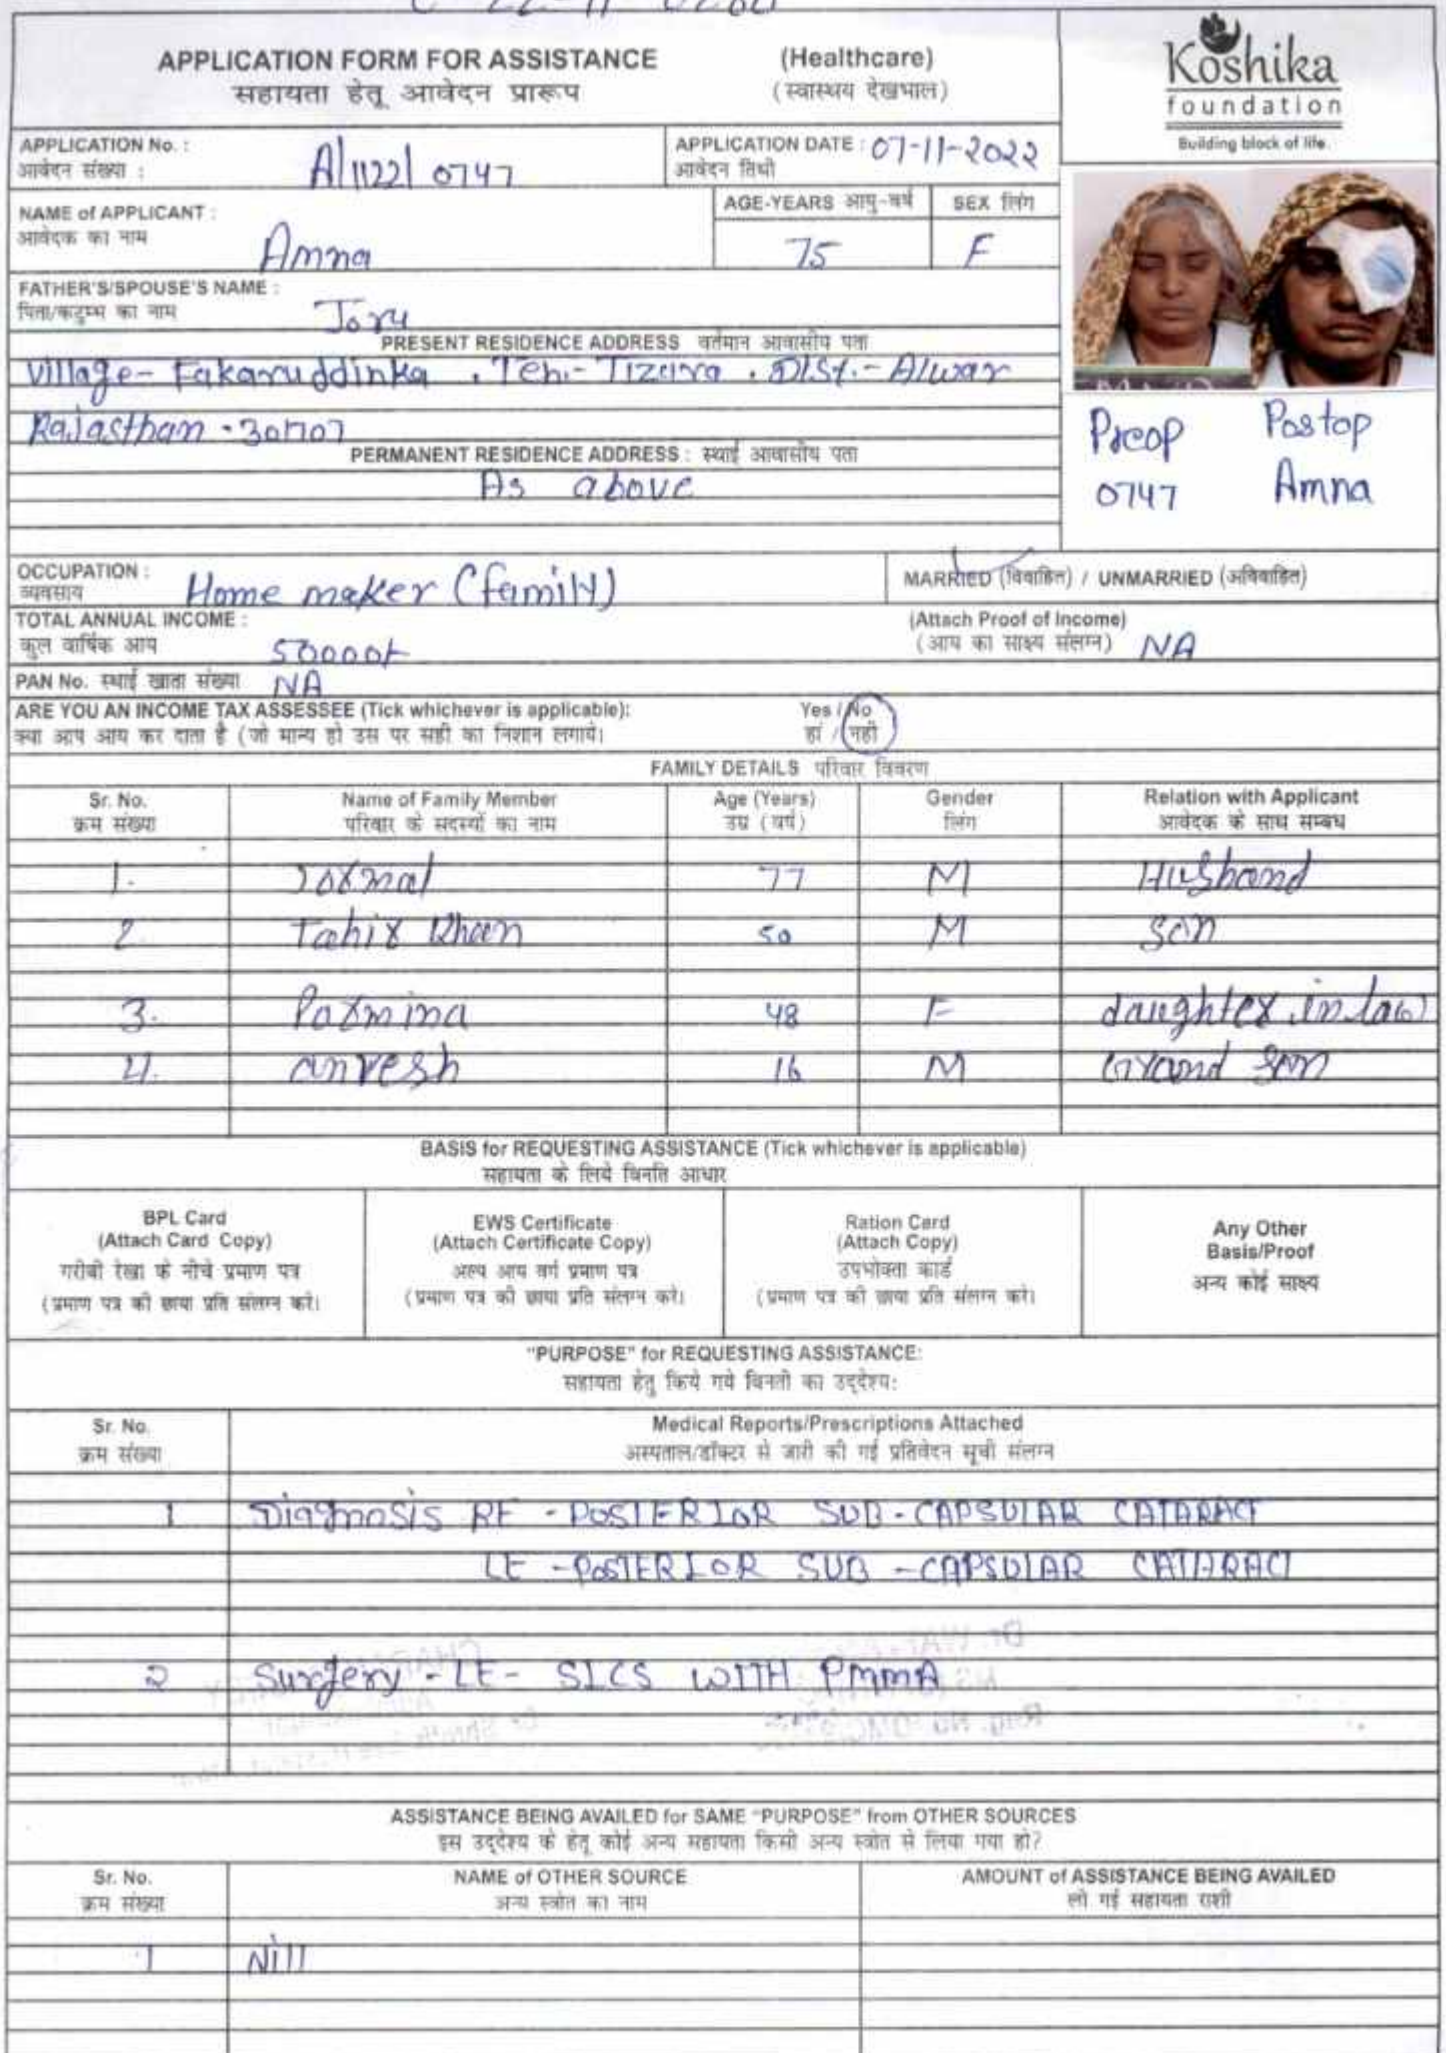 APPLICATION FORM FOR ASSISTANCE (Healthcare)
सहायता हेतू आवेदन प्रारूप (स्वास्थय देखभाल)
Koshika
foundation
Building block of life.
APPLICATION No. : A/1122/0747
आवेदन संख्या :
APPLICATION DATE : 07-11-2022
आवेदन तिथी
NAME of APPLICANT :
आवेदक का नाम Amna
AGE-YEARS आयु-वर्ष SEX लिंग
75 F
FATHER'S/SPOUSE'S NAME :
पिता/कटुम्भ का नाम Joru
PRESENT RESIDENCE ADDRESS वर्तमान आवासीय पता
Village- Fakaruddinka , Teh.- Tizara . Dist.- Alwar
Rajasthan - 301707
PERMANENT RESIDENCE ADDRESS : स्थाई आवासीय पता
As above
Preop Postop
0747 Amna
OCCUPATION :
व्यवसाय Home maker (family)
MARRIED (विवाहित) / UNMARRIED (अविवाहित)
TOTAL ANNUAL INCOME :
कुल वार्षिक आय 50000/-
(Attach Proof of Income)
(आय का साक्ष्य संलग्न) NA
PAN No. स्थाई खाता संख्या NA
ARE YOU AN INCOME TAX ASSESSEE (Tick whichever is applicable): Yes / No
क्या आप आय कर दाता है (जो मान्य हो उस पर सही का निशान लगाये। हां / नही
FAMILY DETAILS परिवार विवरण
Sr. No. Name of Family Member Age (Years) Gender Relation with Applicant
क्रम संख्या परिवार के सदस्यों का नाम उम्र (वर्ष) लिंग आवेदक के साथ सम्बध
1. Jormal 77 M Husband
2 Tahir Khan 50 M Son
3. Parmina 48 F daughter in law
4. anvesh 16 M Grand son
BASIS for REQUESTING ASSISTANCE (Tick whichever is applicable)
सहायता के लिये विनति आधार
BPL Card
(Attach Card Copy)
गरीबी रेखा के नीचे प्रमाण पत्र
(प्रमाण पत्र की छाया प्रति संलग्न करे।
EWS Certificate
(Attach Certificate Copy)
अल्प आय वर्ग प्रमाण पत्र
(प्रमाण पत्र की छाया प्रति संलग्न करे।
Ration Card
(Attach Copy)
उपभोक्ता कार्ड
(प्रमाण पत्र की छाया प्रति संलग्न करे।
Any Other
Basis/Proof
अन्य कोई साक्ष्य
"PURPOSE" for REQUESTING ASSISTANCE:
सहायता हेतु किये गये विनती का उद्देश्य:
Sr. No. Medical Reports/Prescriptions Attached
क्रम संख्या अस्पताल/डॉक्टर से जारी की गई प्रतिवेदन सूची संलग्न
1 Diagnosis RE - POSTERIOR SUB - CAPSULAR CATARACT
LE - POSTERIOR SUB - CAPSULAR CATARACT
2 Surgery - LE - SICS WITH PMMA
ASSISTANCE BEING AVAILED for SAME "PURPOSE" from OTHER SOURCES
इस उद्देश्य के हेतू कोई अन्य सहायता किसी अन्य स्त्रोत से लिया गया हो?
Sr. No. NAME of OTHER SOURCE AMOUNT of ASSISTANCE BEING AVAILED
क्रम संख्या अन्य स्त्रोत का नाम ली गई सहायता राशी
1 Nill